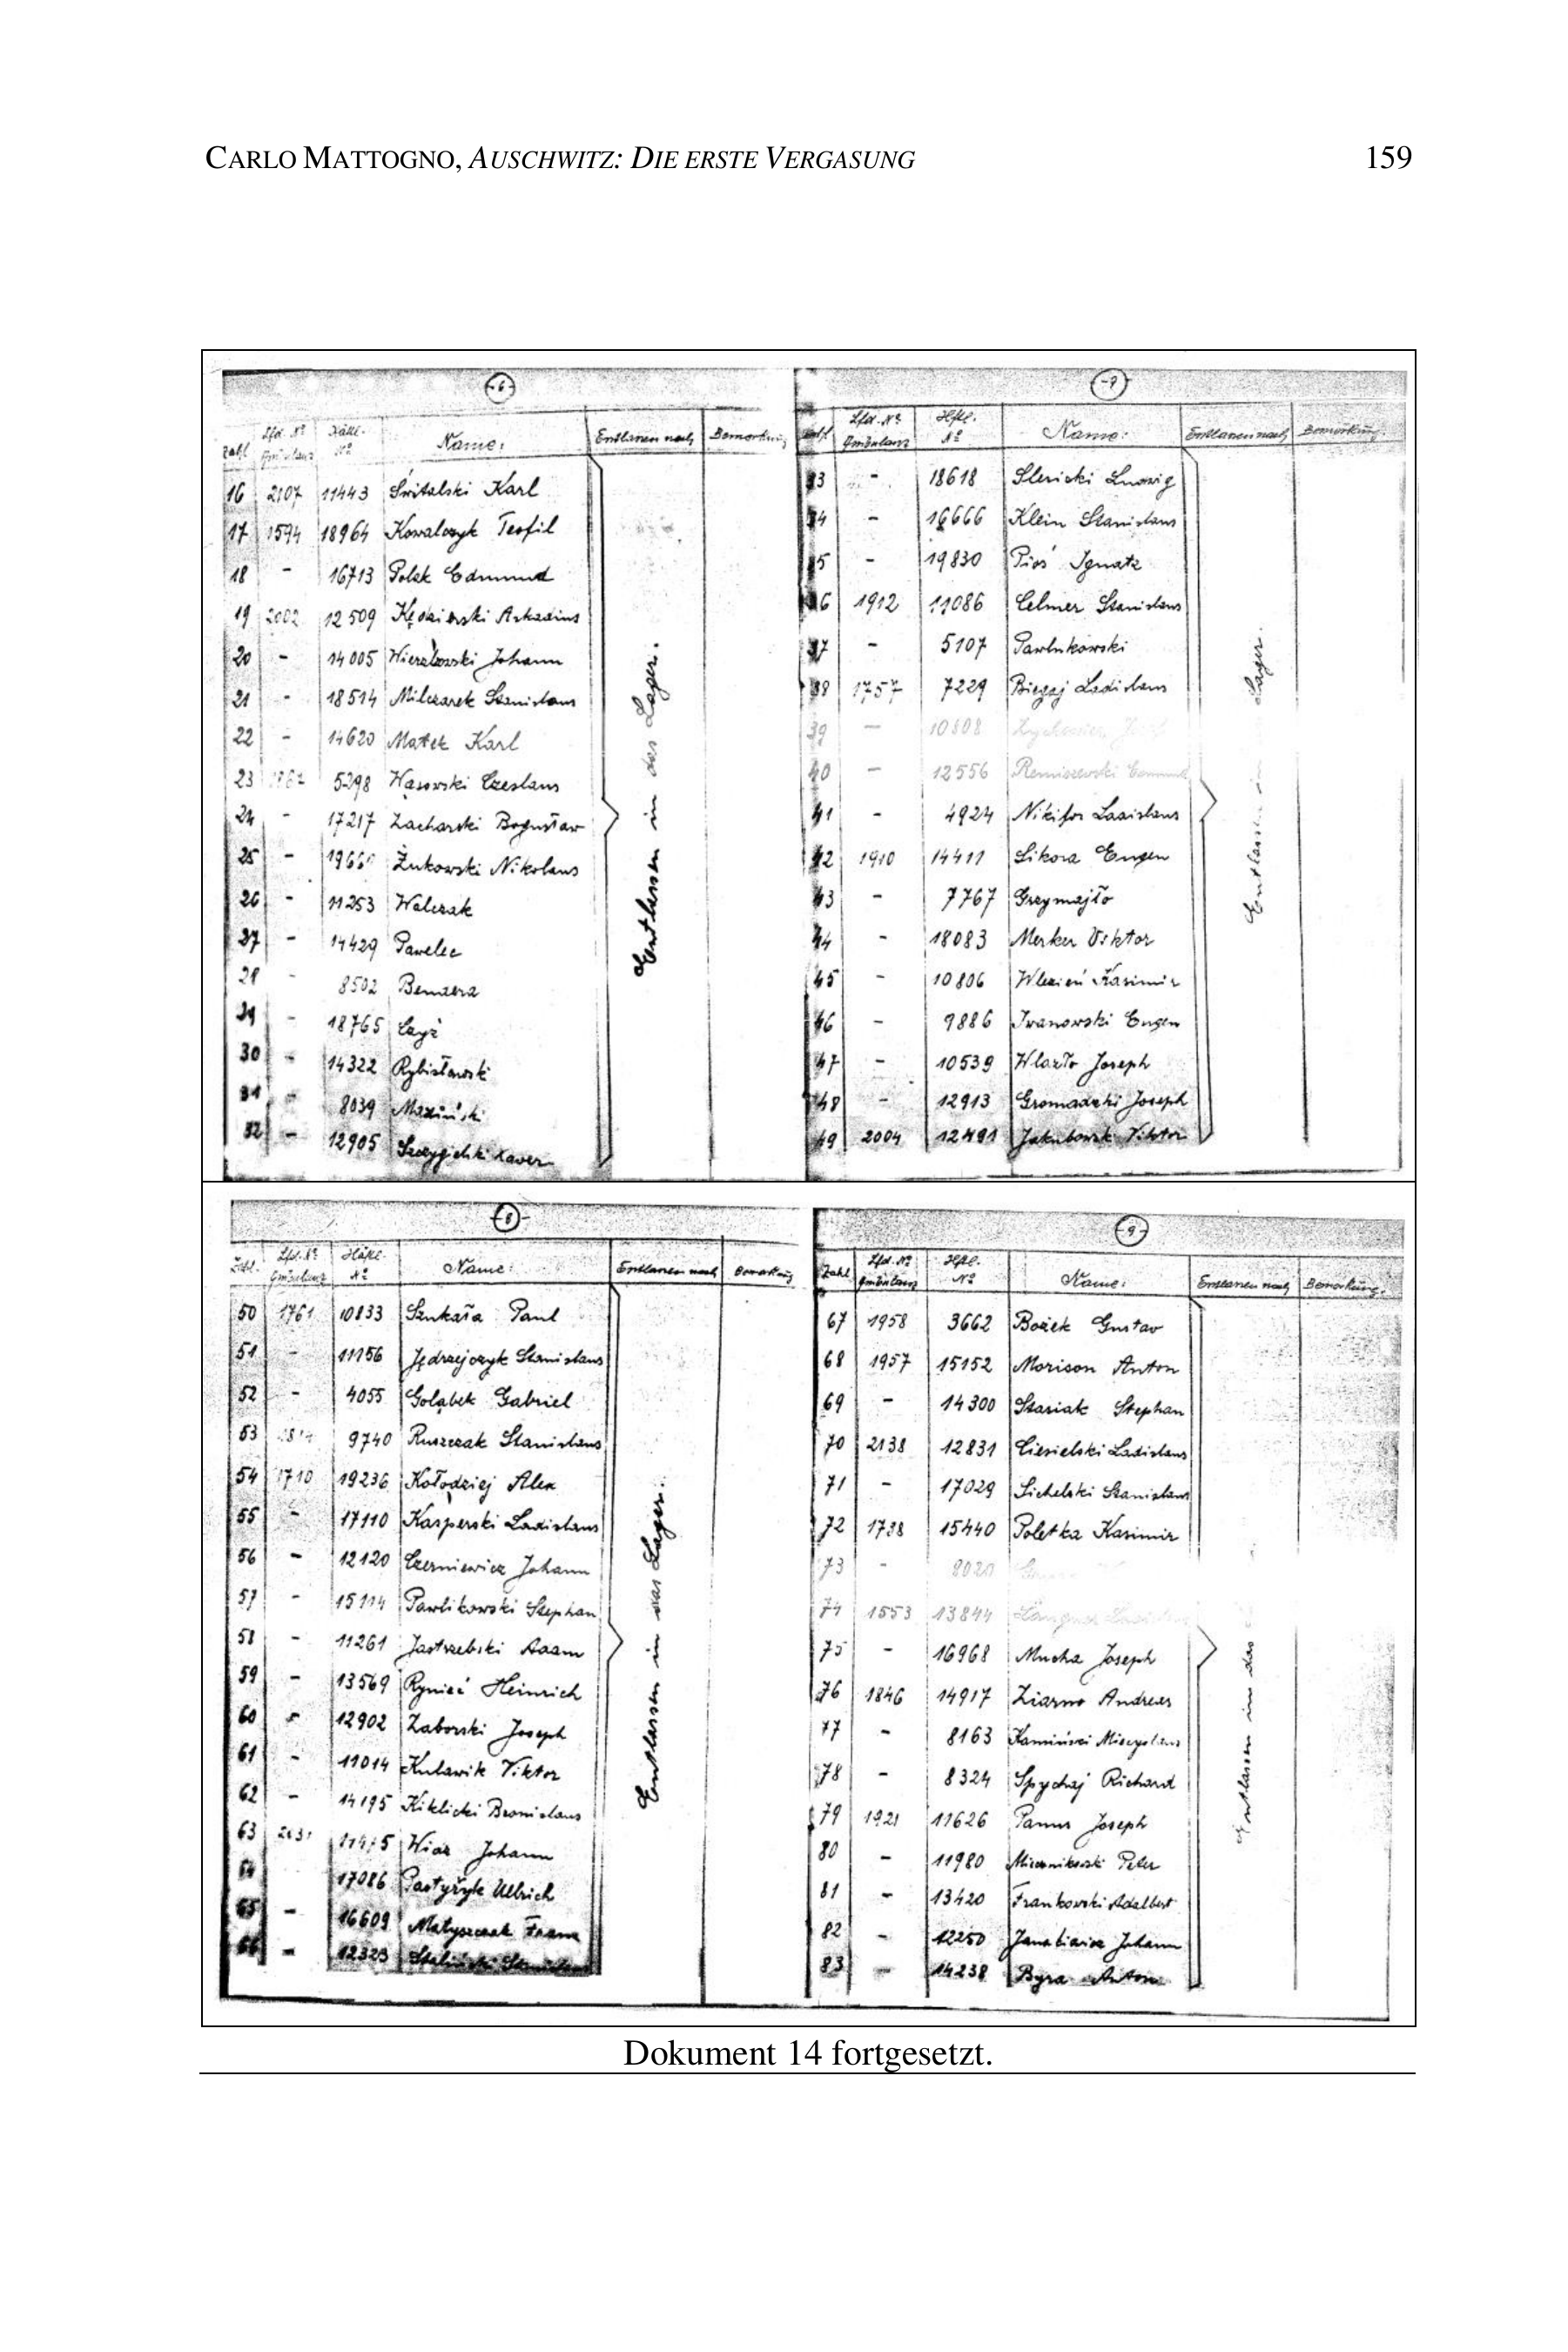 CARLO MATTOGNO, AUSCHWITZ: DIE ERSTE VERGASUNG 159
-6-
Zahl Lfd. No Ambulanz Häftl. No Name: Entlassen nach Bemerkung
16 2107 11443 Świtalski Karl
17 1594 18964 Kowalczyk Teofil
18 - 16713 Polak Edmund
19 2002 12509 Kędzierski Arkadius
20 - 14005 Wierzbowski Johann
21 - 18514 Milczarek Stanislaus
22 - 14620 Matek Karl
23 5298 Wąsowski Czeslaus
24 - 17217 Zacharski Bogusław
25 - Żukowski Nikolaus
26 - 11253 Walczak
27 - 14429 Pawelec
28 - 8502
29 - 18765
30 - 14322 Rybisławski
31 - 8039
32 - 12905 Szczygielski Xaver
Entlassen in das Lager.
-7-
Zahl Lfd. No Ambulanz Hftl. No Name: Entlassen nach Bemerkung
33 - 18618 Ludwig
34 - 16666 Klein Stanislaus
35 - 19830 Ignatz
36 1912 11086 Celmer Stanislaus
37 - 5107 Pawlukowski
38 1757 7229 Biegaj Ladislaus
39 - 10808
40 - 12556
41 - 4924 Nikifor Ladislaus
42 1910 14411 Sikora Eugen
43 - 7767 Grzymajło
44 - 18083 Merker Viktor
45 - 10806 Kasimir
46 - 9886 Iwanowski Eugen
47 - 10539 Wlazło Joseph
48 - 12913 Gromadzki Joseph
49 2004 12491 Jakubowski Viktor
Entlassen in Lager.
-8-
Zahl Lfd. No Ambulanz Häftl. No Name: Entlassen nach Bemerkung
50 1761 10833 Szukała Paul
51 - 11156 Jędrzejczyk Stanislaus
52 - 4055 Gołąbek Gabriel
53 9740 Ruszczak Stanislaus
54 1710 19236 Kołodziej Alex
55 - 17110 Kasperski Ladislaus
56 - 12120 Czerniewicz Johann
57 - 15114 Pawlikowski Stephan
58 - 11261 Jastrzebski Adam
59 - 13569 Heinrich
60 - 12902 Zaborski Joseph
61 - 11014 Kulawik Viktor
62 - 14195 Kiklicki Bronislaus
63 Johann
64 17086 Ullrich
65 - 16609 Matyszczak Franz
66 - 12323
Entlassen in das Lager.
-9-
Zahl Lfd. No Ambulanz Hftl. No Name: Entlassen nach Bemerkung.
67 1958 3662 Bożek Gustav
68 1957 15152 Morison Anton
69 - 14300 Stasiak Stephan
70 2138 12831 Ciesielski Ladislaus
71 - 17029 Sichelski Stanislaus
72 1738 15440 Poletka Kasimir
73 - 8020
74 1553 13844
75 - 16968 Mucha Joseph
76 1846 14917 Ziarno Andreas
77 - 8163 Kamiński
78 - 8324 Spychaj Richard
79 1921 11626 Panus Joseph
80 - 11980 Peter
81 - 13420 Frankowski Adalbert
82 - 12250 Johann
83 - 14238 Byra Anton
Entlassen in das
Dokument 14 fortgesetzt.